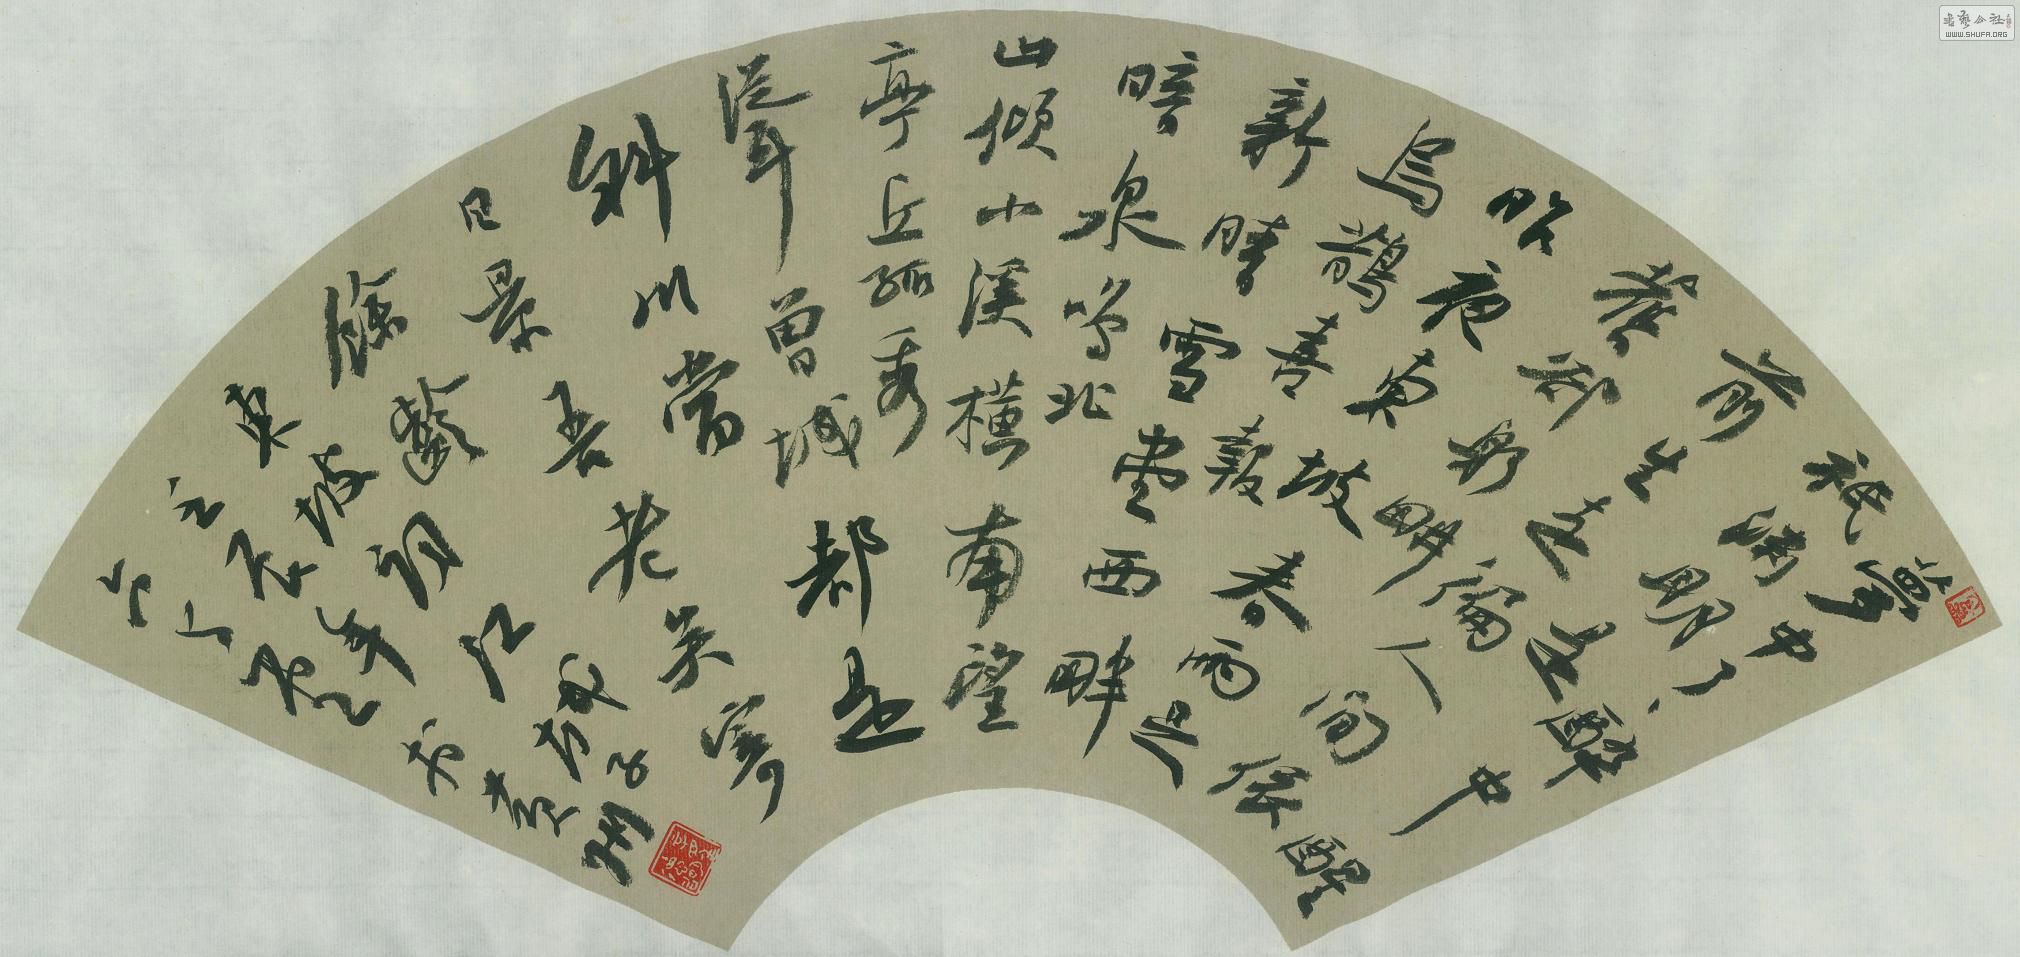 夢中了、醉中醒
祇淵明是
前生走遍人間依
舊却躬耕
昨夜東坡春雨足
烏鵲喜報
新晴雪堂西畔
暗泉鳴北
山傾小溪橫南望
亭丘孤秀
聳曾城都是
斜川當
日景吾老矣寄
餘齡詞江城子
東坡
WWW.SHUFA.ORG